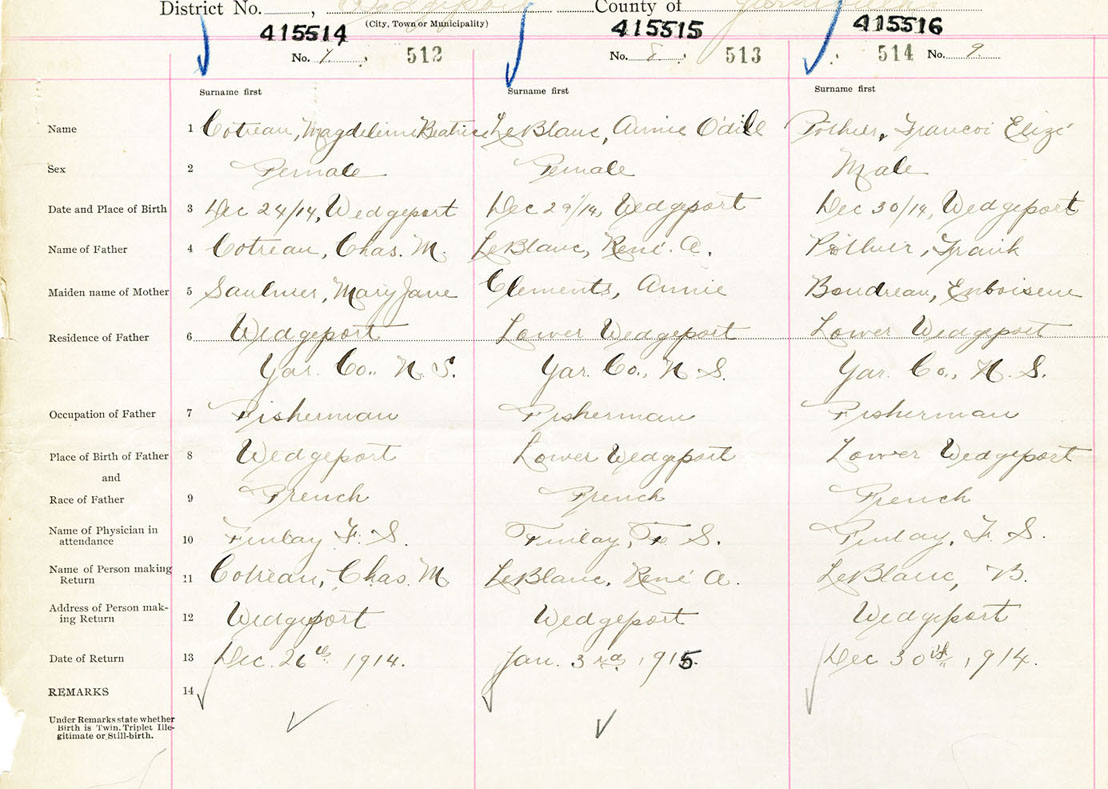 District No. , Wedgeport County of Yarmouth
(City, Town or Municipality)
415514 415515 415516
No. 7 512 No. 8 513 514 No. 9
Surname first Surname first Surname first
Name 1 Cotreau, Magdeline Beatrice LeBlanc, Annie Odile Pothier, Francoi Elizé
Sex 2 Female Female Male
Date and Place of Birth 3 Dec 24/14, Wedgeport Dec 29/14, Wedgeport Dec 30/14, Wedgeport
Name of Father 4 Cotreau, Chas. M. LeBlanc, René A. Pothier, Frank
Maiden name of Mother 5 Saulnier, Mary Jane Clements, Annie Boudreau,
Residence of Father 6 Wedgeport Lower Wedgeport Lower Wedgeport
Yar. Co., N. S. Yar. Co., N S. Yar. Co., N. S.
Occupation of Father 7 Fisherman Fisherman Fisherman
Place of Birth of Father 8 Wedgeport Lower Wedgeport Lower Wedgeport
and
Race of Father 9 French French French
Name of Physician in
attendance 10 Finlay F. S. Finlay, F. S. Finlay, F. S.
Name of Person making
Return 11 Cotreau, Chas. M LeBlanc, René A. LeBlanc, B.
Address of Person mak-
ing Return 12 Wedgeport Wedgeport Wedgeport
Date of Return 13 Dec. 26th 1914. Jan. 3rd, 1915 Dec 30th, 1914.
REMARKS 14
Under Remarks state whether
Birth is Twin, Triplet Ille-
gitimate or Still-birth.